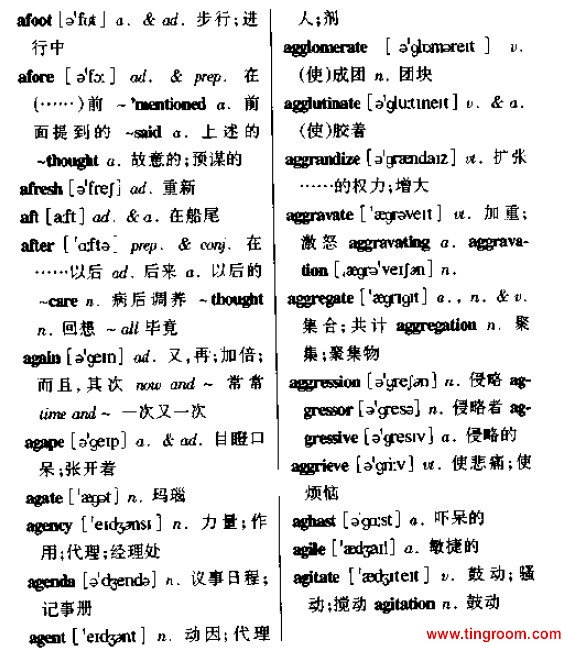 afoot [ə'fʊt] a. & ad. 步行;进
行中
afore [ə'fɔ:] ad. & prep. 在
(……)前 ~'mentioned a. 前
面提到的 ~said a. 上述的
~thought a. 故意的;预谋的
afresh [ə'freʃ] ad. 重新
aft [ɑ:ft] ad. & a. 在船尾
after ['ɑ:ftə] prep. & conj. 在
……以后 ad. 后来 a. 以后的
~care n. 病后调养 ~thought
n. 回想 ~ all 毕竟
again [ə'geɪn] ad. 又,再;加倍;
而且,其次 now and ~ 常常
time and ~ 一次又一次
agape [ə'geɪp] a. & ad. 目瞪口
呆;张开着
agate ['ægət] n. 玛瑙
agency ['eɪdʒənsɪ] n. 力量;作
用;代理;经理处
agenda [ə'dʒendə] n. 议事日程;
记事册
agent ['eɪdʒənt] n. 动因;代理
人;剂
agglomerate [ə'glɒməreɪt] v.
(使)成团 n. 团块
agglutinate [ə'glu:tɪneɪt] v. & a.
(使)胶着
aggrandize [ə'grændaɪz] vt. 扩张
……的权力;增大
aggravate ['ægrəveɪt] vt. 加重;
激怒 aggravating a. aggrava-
tion [ˌægrə'veɪʃən] n.
aggregate ['ægrɪgɪt] a., n. & v.
集合;共计 aggregation n. 聚
集;聚集物
aggression [ə'greʃən] n. 侵略 ag-
gressor [ə'gresə] n. 侵略者 ag-
gressive [ə'gresɪv] a. 侵略的
aggrieve [ə'gri:v] vt. 使悲痛;使
烦恼
aghast [ə'gɑ:st] a. 吓呆的
agile ['ædʒaɪl] a. 敏捷的
agitate ['ædʒɪteɪt] v. 鼓动;骚
动;搅动 agitation n. 鼓动
www.tingroom.com